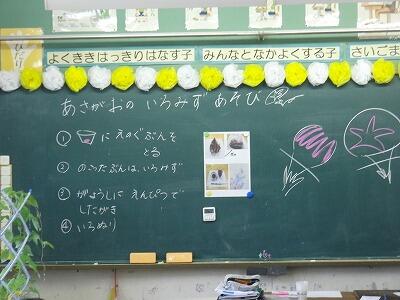 ひだり
よくききはっきりはなす子
みんなとなかよくする子
さいごま
あさがおの いろみずあそび
① に えのぐぶんそ
とる
② のこったぶんは、いろみず
③ がようしに えんぴつで
したがき
④ いろぬり